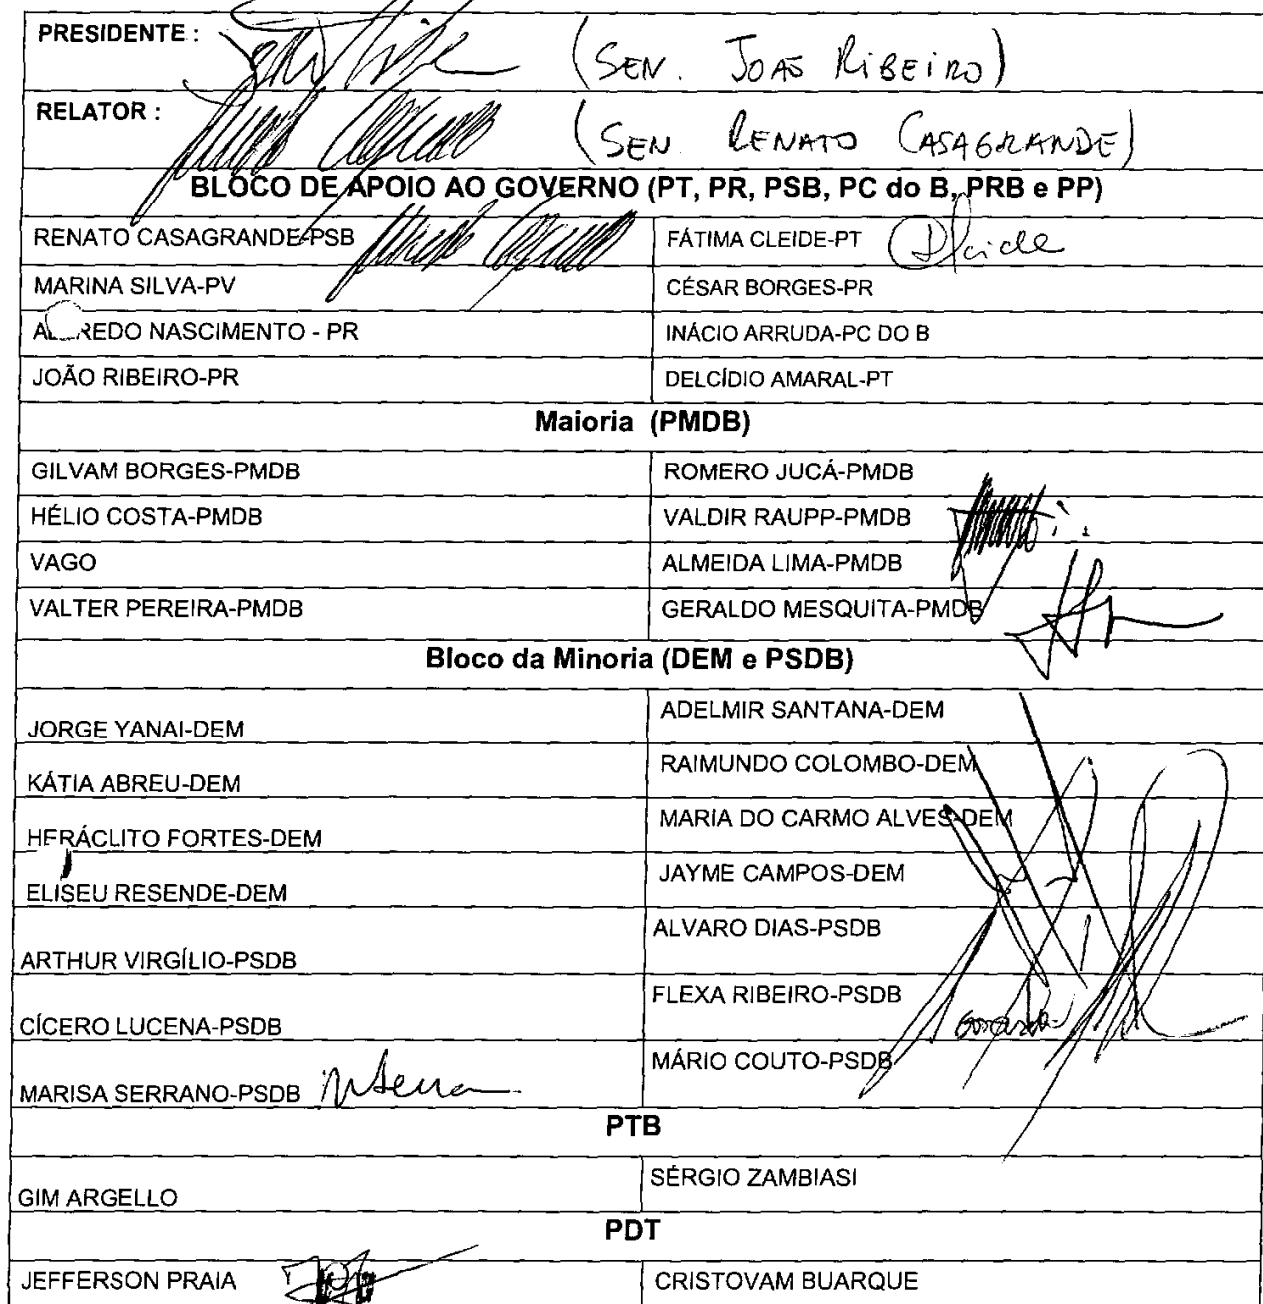 PRESIDENTE : (SEN. JOAO RIBEIRO)
RELATOR : (SEN RENATO CASAGRANDE)
BLOCO DE APOIO AO GOVERNO (PT, PR, PSB, PC do B, PRB e PP)
RENATO CASAGRANDE-PSB FÁTIMA CLEIDE-PT
MARINA SILVA-PV CÉSAR BORGES-PR
NASCIMENTO - PR INÁCIO ARRUDA-PC DO B
JOÃO RIBEIRO-PR DELCÍDIO AMARAL-PT
Maioria (PMDB)
GILVAM BORGES-PMDB ROMERO JUCÁ-PMDB
HÉLIO COSTA-PMDB VALDIR RAUPP-PMDB
VAGO ALMEIDA LIMA-PMDB
VALTER PEREIRA-PMDB GERALDO MESQUITA-PMDB
Bloco da Minoria (DEM e PSDB)
JORGE YANAI-DEM ADELMIR SANTANA-DEM
KÁTIA ABREU-DEM RAIMUNDO COLOMBO-DEM
HERÁCLITO FORTES-DEM MARIA DO CARMO ALVES-DEM
ELISEU RESENDE-DEM JAYME CAMPOS-DEM
ARTHUR VIRGÍLIO-PSDB ALVARO DIAS-PSDB
CÍCERO LUCENA-PSDB FLEXA RIBEIRO-PSDB
MARISA SERRANO-PSDB MÁRIO COUTO-PSDB
PTB
GIM ARGELLO SÉRGIO ZAMBIASI
PDT
JEFFERSON PRAIA CRISTOVAM BUARQUE